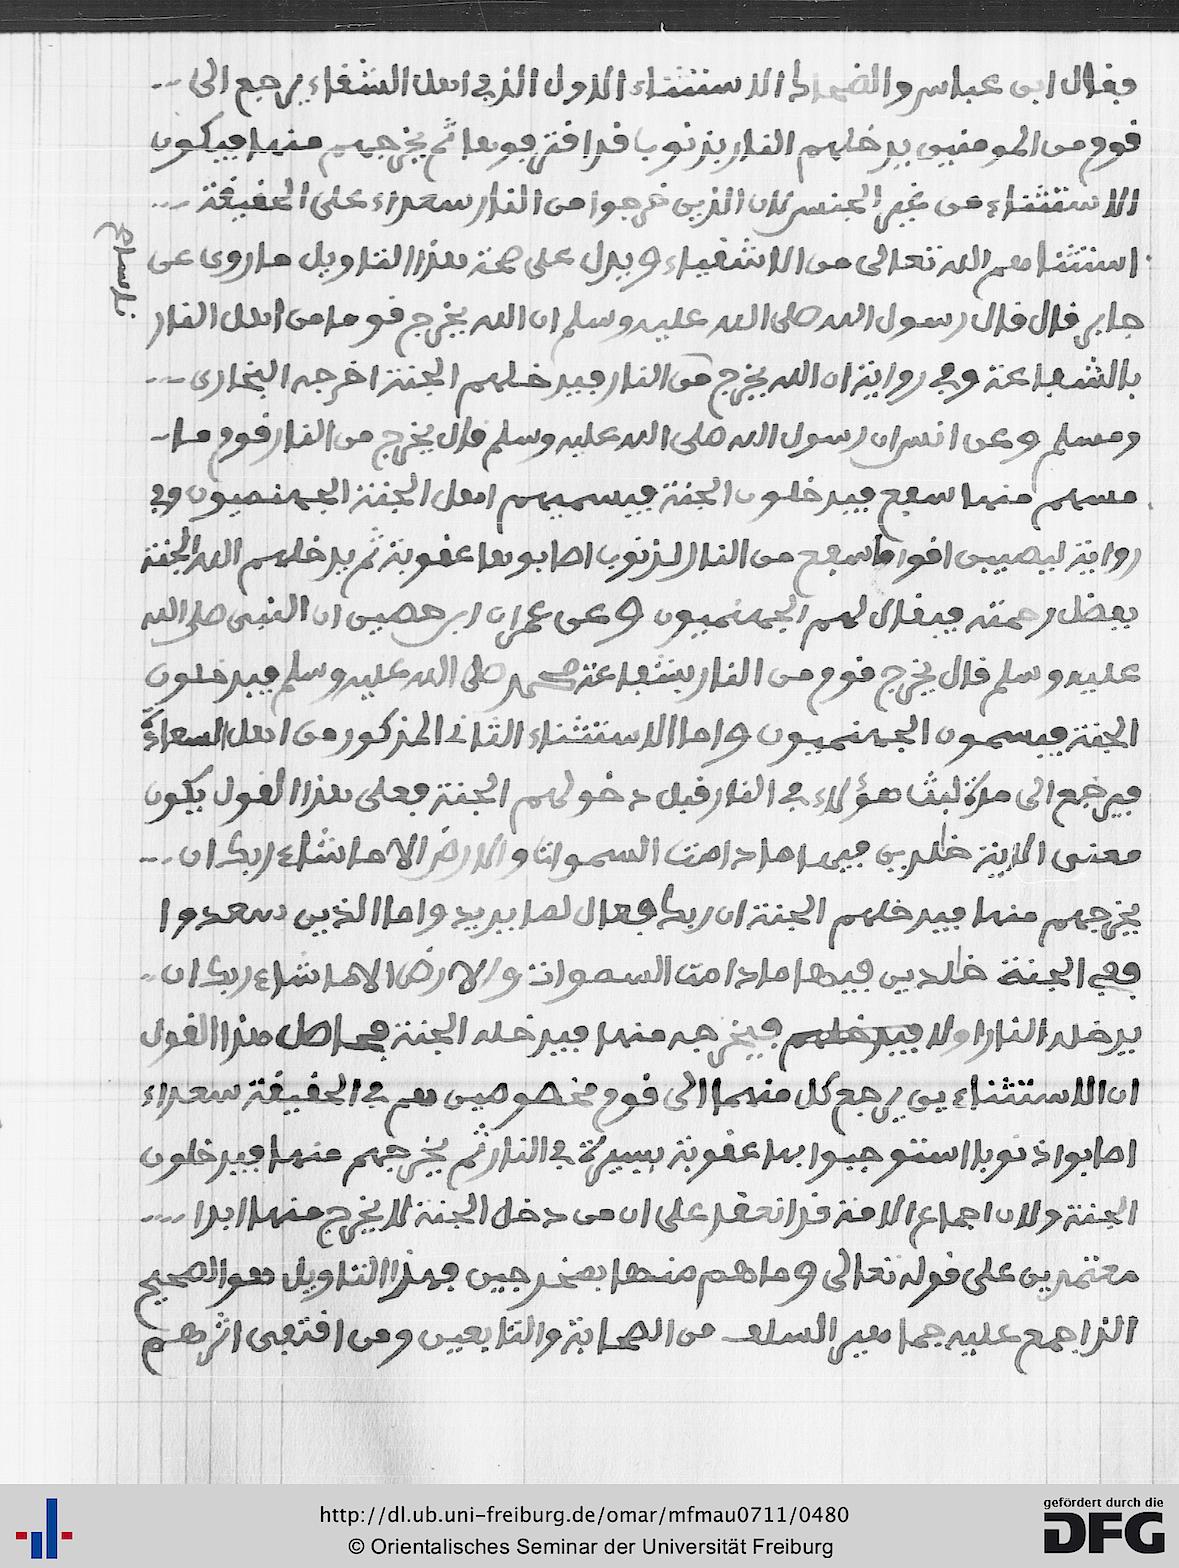 فقال ابن عباس والضحاك الاستثناء الاول الذي في اهل الشقاء يرجع الى
قوم من المومنين يدخلهم النار بذنوب اقترفوها ثم يخرجهم منها فيكون
الاستثناء من غير الجنس لان الذين خرجوا من النار سعداء على الحقيقة
استثناهم الله تعالى من الاشقياء ويدل على صحة هذا التاويل ما روى عن
جابر قال قال رسول الله صلى الله عليه وسلم ان الله يخرج قوما من اهل النار
بالشفاعة وفي رواية ان الله يخرج من النار فيدخلهم الجنة اخرجه البخارى
ومسلم وعن انس ان رسول الله صلى الله عليه وسلم قال يخرج من النار قوم ما
مسهم منها سفع فيدخلون الجنة فيسميهم اهل الجنة الجهنميون وفي
رواية ليصيبن اقواما سفع من النار لذنوب اصابوها عقوبة ثم يدخلهم الله الجنة
بفضل رحمته فيقال لهم الجهنميون وعن عمران ابن حصين ان النبى صلى الله
عليه وسلم قال يخرج قوم من النار بشفاعة محمد صلى الله عليه وسلم فيدخلون
الجنة فيسمون الجهنميون واما الاستثناء الثانى المذكور من اهل السعادة
فيرجع الى مدة لبث هؤلاء في النار قبل دخولهم الجنة فعلى هذا القول يكون
معنى الاية خلدين فيها ما دامت السموات والارض الا ما شاء ربك ان
يخرجهم منها فيدخلهم الجنة ان ربك فعال لما يريد واما الذين سعدوا
ففي الجنة خلدين فيها ما دامت السموات والارض الا ما شاء ربك ان
يدخله النار اولا فيدخلهم فيخرجه منها فيدخله الجنة فحاصل هذا القول
ان الاستثناءين يرجع كل منهما الى قوم مخصوصين هم في الحقيقة سعداء
اصابوا ذنوبا استوجبوا بها عقوبة يسيرة في النار ثم يخرجهم منها فيدخلون
الجنة ولان اجماع الامة قد انعقد على ان من دخل الجنة لا يخرج منها ابدا
معتمدين على قوله تعالى وما هم منها بمخرجين فهذا التاويل هو الصحيح
الذ اجمع عليه جماهير السلف من الصحابة والتابعين ومن اقتفى اثرهم
http://dl.ub.uni-freiburg.de/omar/mfmau0711/0480
© Orientalisches Seminar der Universität Freiburg
gefördert durch die
DFG